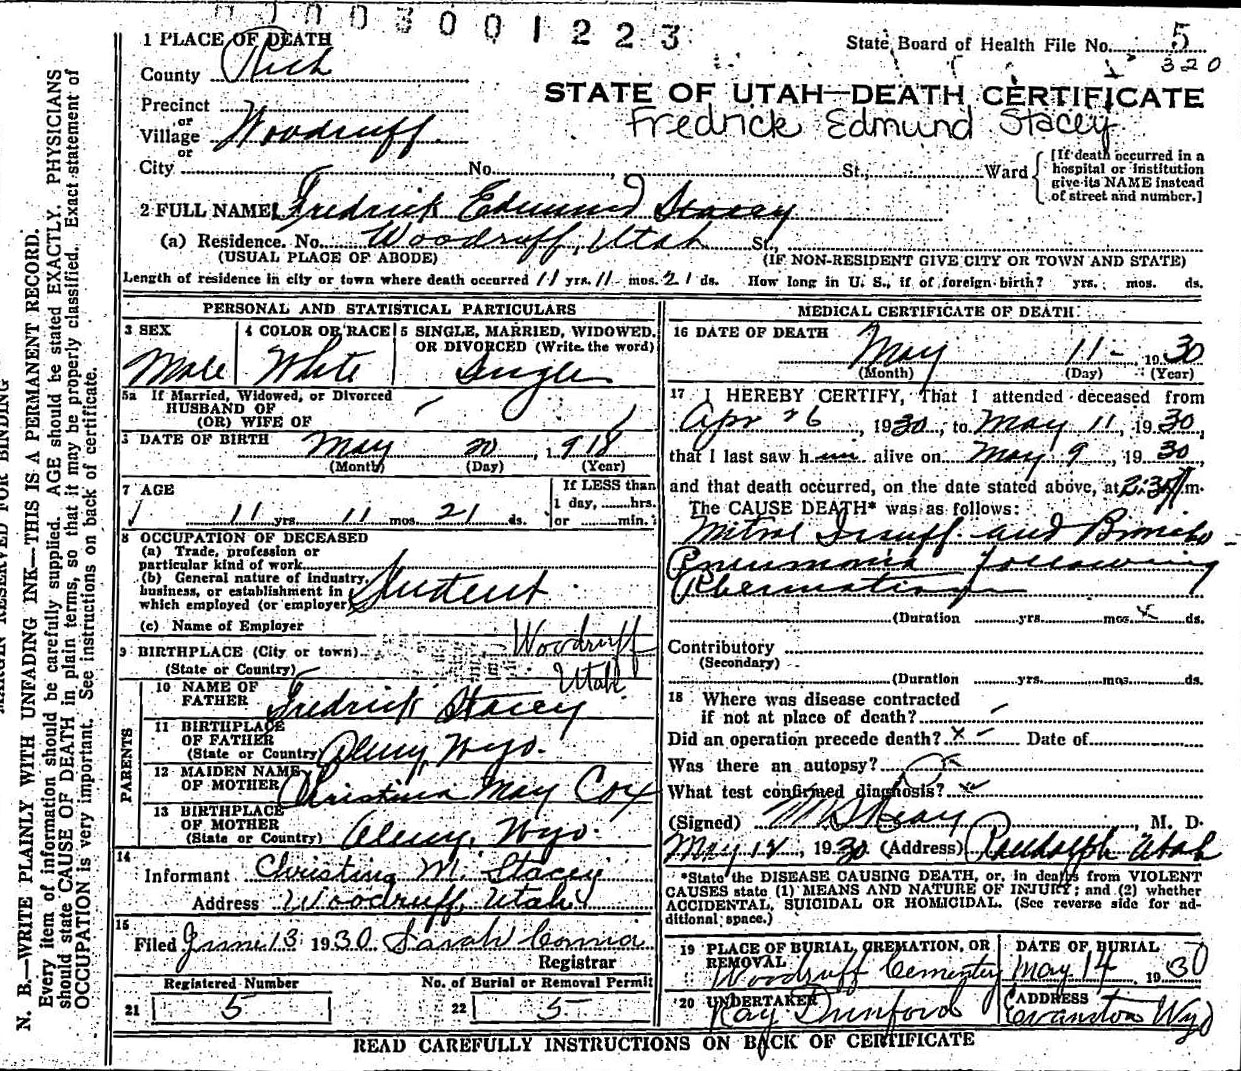 0003001223
State Board of Health File No. 5
320
1 PLACE OF DEATH
County Rich
STATE OF UTAH—DEATH CERTIFICATE
Fredrick Edmund Stacey
Precinct
or
Village Woodruff
or
City No. St., Ward
[If death occurred in a
hospital or institution
give its NAME instead
of street and number.]
2 FULL NAME Fredrick Edmund Stacey
(a) Residence. No. Woodruff, Utah St.,
(USUAL PLACE OF ABODE) (IF NON-RESIDENT GIVE CITY OR TOWN AND STATE)
Length of residence in city or town where death occurred 11 yrs. 11 mos. 21 ds. How long in U. S., if of foreign birth? yrs. mos. ds.
PERSONAL AND STATISTICAL PARTICULARS
3 SEX
Male
4 COLOR OR RACE
White
5 SINGLE, MARRIED, WIDOWED,
OR DIVORCED (Write the word)
Single
5a If Married, Widowed, or Divorced
HUSBAND OF
(OR) WIFE OF
DATE OF BIRTH May 20, 1918
(Month) (Day) (Year)
7 AGE
11 yrs. 11 mos. 21 ds.
If LESS than
1 day, hrs.
or min.
8 OCCUPATION OF DECEASED
(a) Trade, profession or
particular kind of work
(b) General nature of industry,
business, or establishment in
which employed (or employer) Student
(c) Name of Employer
9 BIRTHPLACE (City or town) Woodruff
(State or Country) Utah
PARENTS
10 NAME OF
FATHER Fredrick Stacey
11 BIRTHPLACE
OF FATHER
(State or Country) Almy, Wyo.
12 MAIDEN NAME
OF MOTHER Christina May Cox
13 BIRTHPLACE
OF MOTHER
(State or Country) Almy, Wyo.
14
Informant Christina M. Stacey
Address Woodruff, Utah
15
Filed June 13 1930 Sarah
Registrar
Registered Number
21 5
No. of Burial or Removal Permit
22 5
MEDICAL CERTIFICATE OF DEATH
16 DATE OF DEATH
May 11- 1930
(Month) (Day) (Year)
17 I HEREBY CERTIFY, That I attended deceased from
Apr 26, 1930, to May 11, 1930,
that I last saw him alive on May 9, 1930,
and that death occurred, on the date stated above, at m.
The CAUSE DEATH* was as follows:
Mitral Insuff. and Broncho-
Pneumonia following
Rheumatism
(Duration yrs. mos. x ds.
Contributory
(Secondary)
(Duration yrs. mos. ds.
18 Where was disease contracted
if not at place of death? -
Did an operation precede death? x - Date of
Was there an autopsy?
What test confirmed diagnosis? x
(Signed) , M. D.
May 12, 1930 (Address) Randolph Utah
*State the DISEASE CAUSING DEATH, or, in deaths from VIOLENT
CAUSES state (1) MEANS AND NATURE OF INJURY; and (2) whether
ACCIDENTAL, SUICIDAL OR HOMICIDAL. (See reverse side for ad-
ditional space.)
19 PLACE OF BURIAL, CREMATION, OR
REMOVAL
Woodruff Cementery
DATE OF BURIAL
May 14, 1930
20 UNDERTAKER
Ray Dunford
ADDRESS
Evanston Wyo
READ CAREFULLY INSTRUCTIONS ON BACK OF CERTIFICATE
MARGIN RESERVED FOR BINDING
N. B.—WRITE PLAINLY WITH UNFADING INK—THIS IS A PERMANENT RECORD.
Every item of information should be carefully supplied. AGE should be stated EXACTLY. PHYSICIANS
should state CAUSE OF DEATH in plain terms, so that it may be properly classified. Exact statement of
OCCUPATION is very important. See instructions on back of certificate.